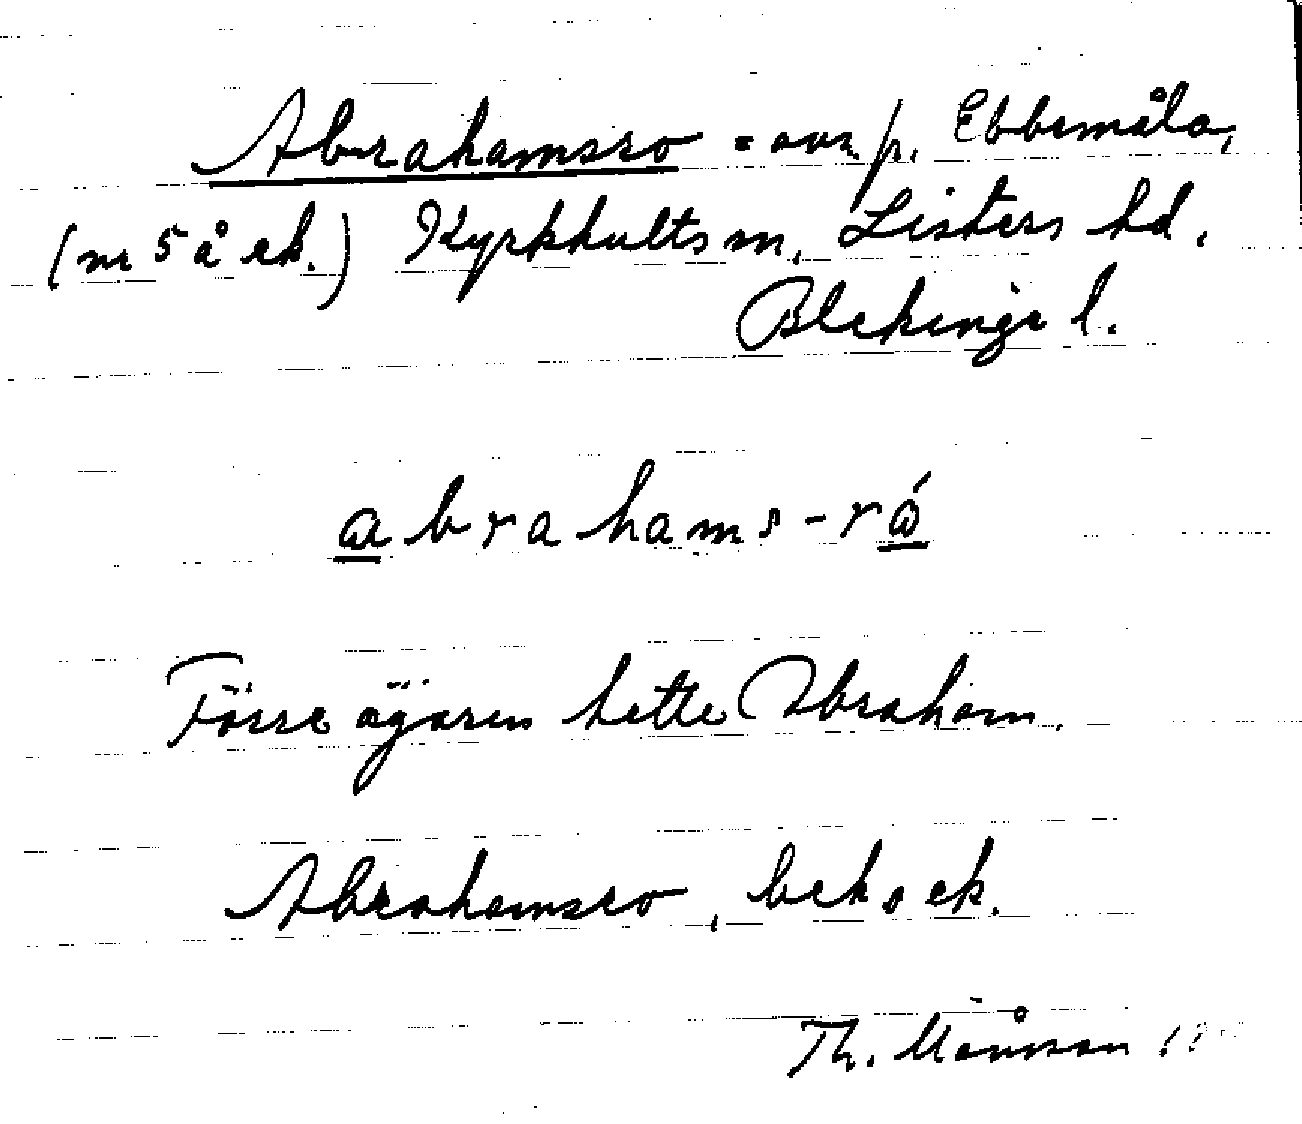 Abrahamsro = avs. p. Ebbemåla,
(nr 5 å ek.) Kyrkhults sn, Listers hd.
Blekinge l.
abrahams-ró
Förre ägaren hette Abraham.
Abrahamsro, bek. o. ek.
Th. Månsson